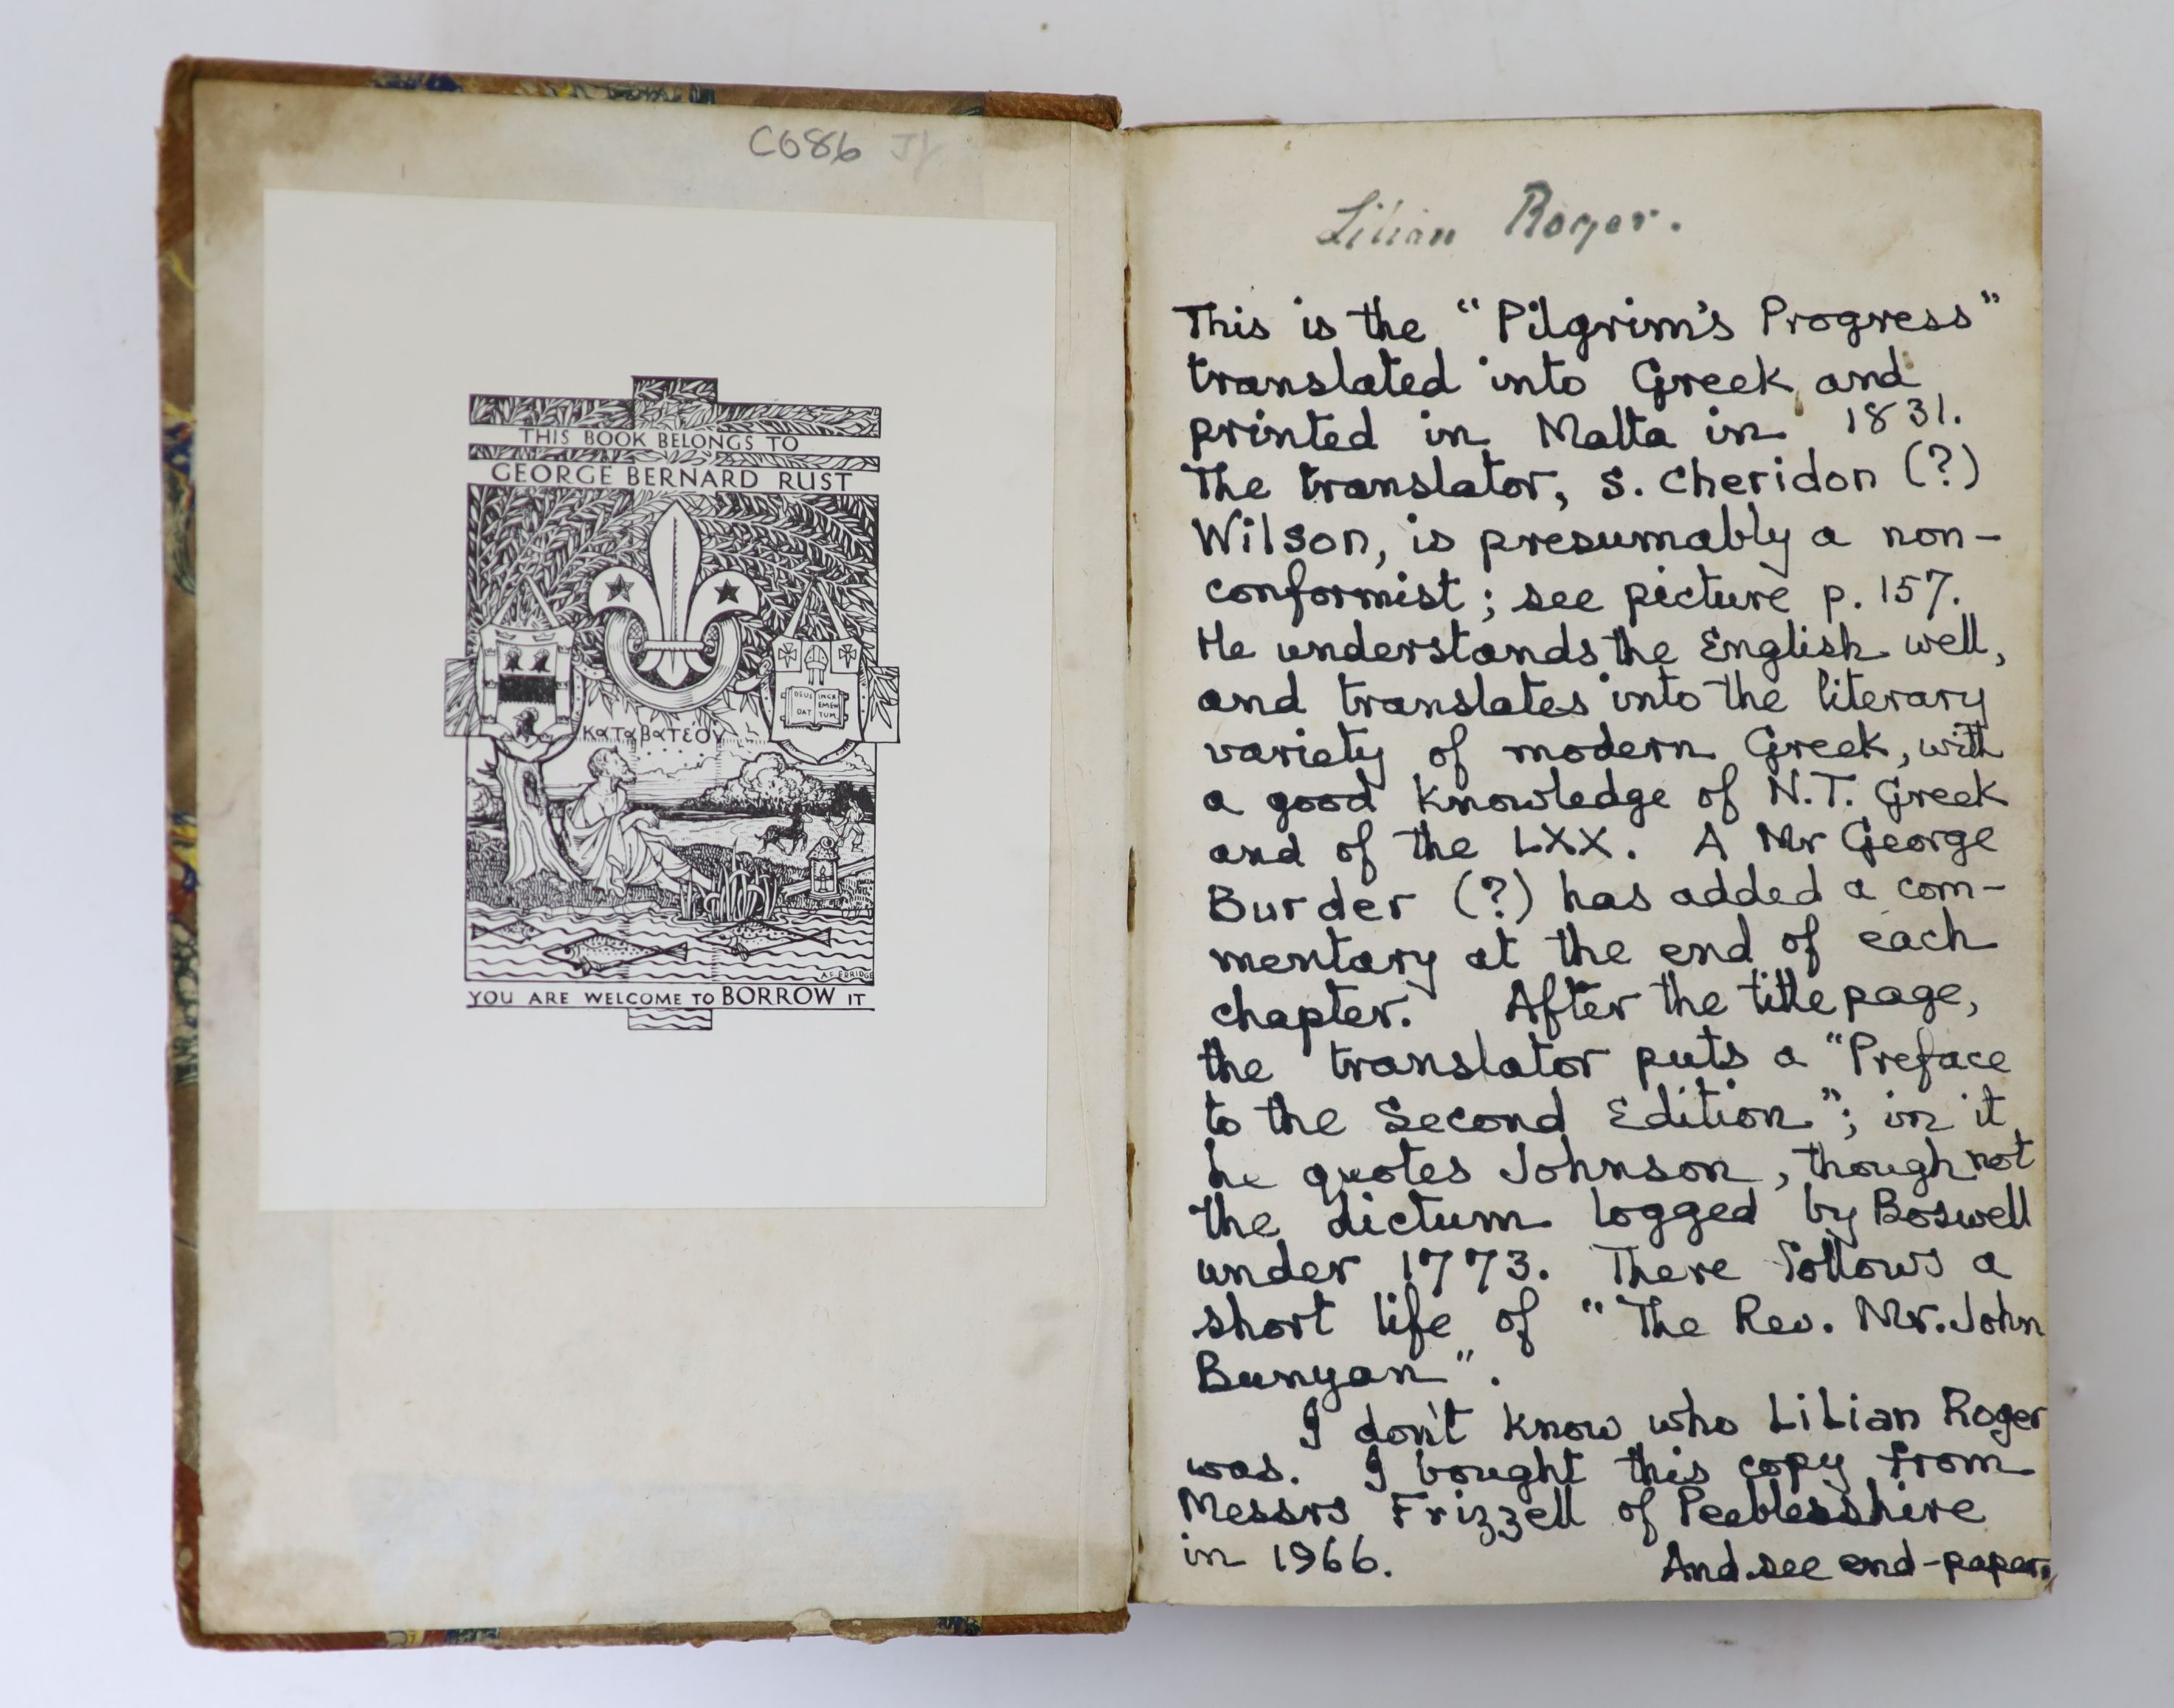 C686
THIS BOOK BELONGS TO
GEORGE BERNARD RUST
DEUS INCR
EMEN
DAT TUM
ΚαΤαΒαΤέον
A.S. ERRIDGE
YOU ARE WELCOME TO BORROW IT
Lilian Roger.
This is the "Pilgrim's Progress"
translated into Greek and
printed in Malta in 1831.
The translator, S. Cheridon (?)
Wilson, is presumably a non-
conformist; see picture p. 157.
He understands the English well,
and translates into the literary
variety of modern Greek, with
a good knowledge of N.T. Greek
and of the LXX. A Mr George
Burder (?) has added a com-
mentary at the end of each
chapter. After the title page,
the translator puts a "Preface
to the Second Edition"; in it
he quotes Johnson, though not
the dictum logged by Boswell
under 1773. There follows a
short life of "The Rev. Mr. John
Bunyan".
I don't know who Lilian Roger
was. I bought this copy from
Messrs Frizzell of Peeblesshire
in 1966. And see end-paper.